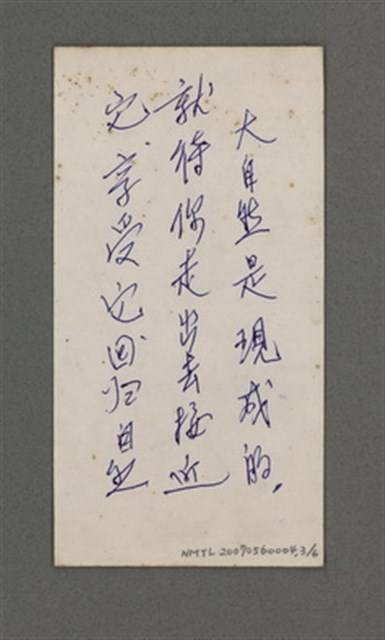 大自然是現成的，
就待你走出去接近
它，享受它回归自然
NMTL 20070560004, 3/6